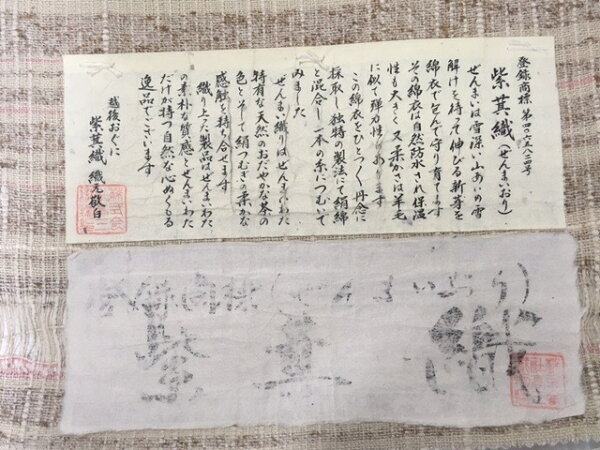 登録商標 第四〇六五八二四号
紫萁織(ぜんまいおり)
ぜんまいは雪深い山あいの雪
解けを待って伸びる新芽を
綿衣で包んで守り育てます
その綿衣は自然防水され保温
性も大きく又柔かさは羊毛
に似て弾力性があります
この綿衣をひとつ〱丹念に
採取し独特の製法にて絹綿
と混合し一本の糸につむいで
みました
ぜんまい織りはぜんまいわた
特有な天然のおだやかな茶の
色とそして絹つむぎの柔かな
感触を持ち合せます
織り上った製品はぜんまいわた
の素朴な質感とぜんまいわた
だけが持つ自然な心ぬくもる
逸品でございます
越後おぐに
紫萁織 織元敬白
登録商標(ぜんまいおり)
紫萁織